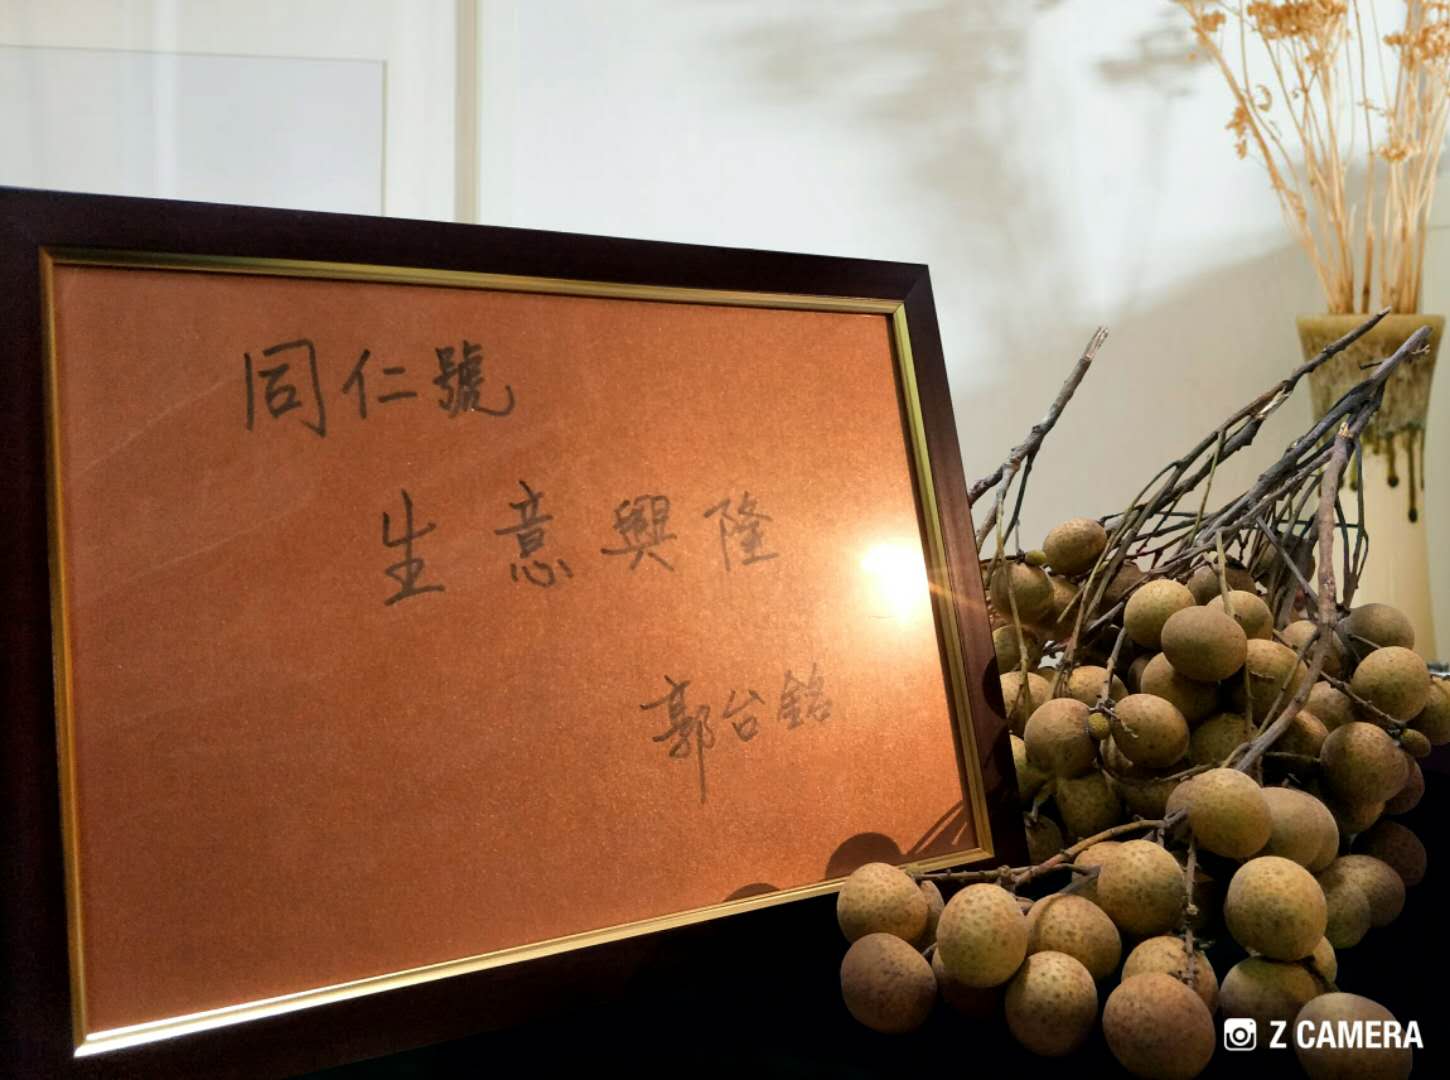 同仁號
生意興隆
郭台銘
Z CAMERA